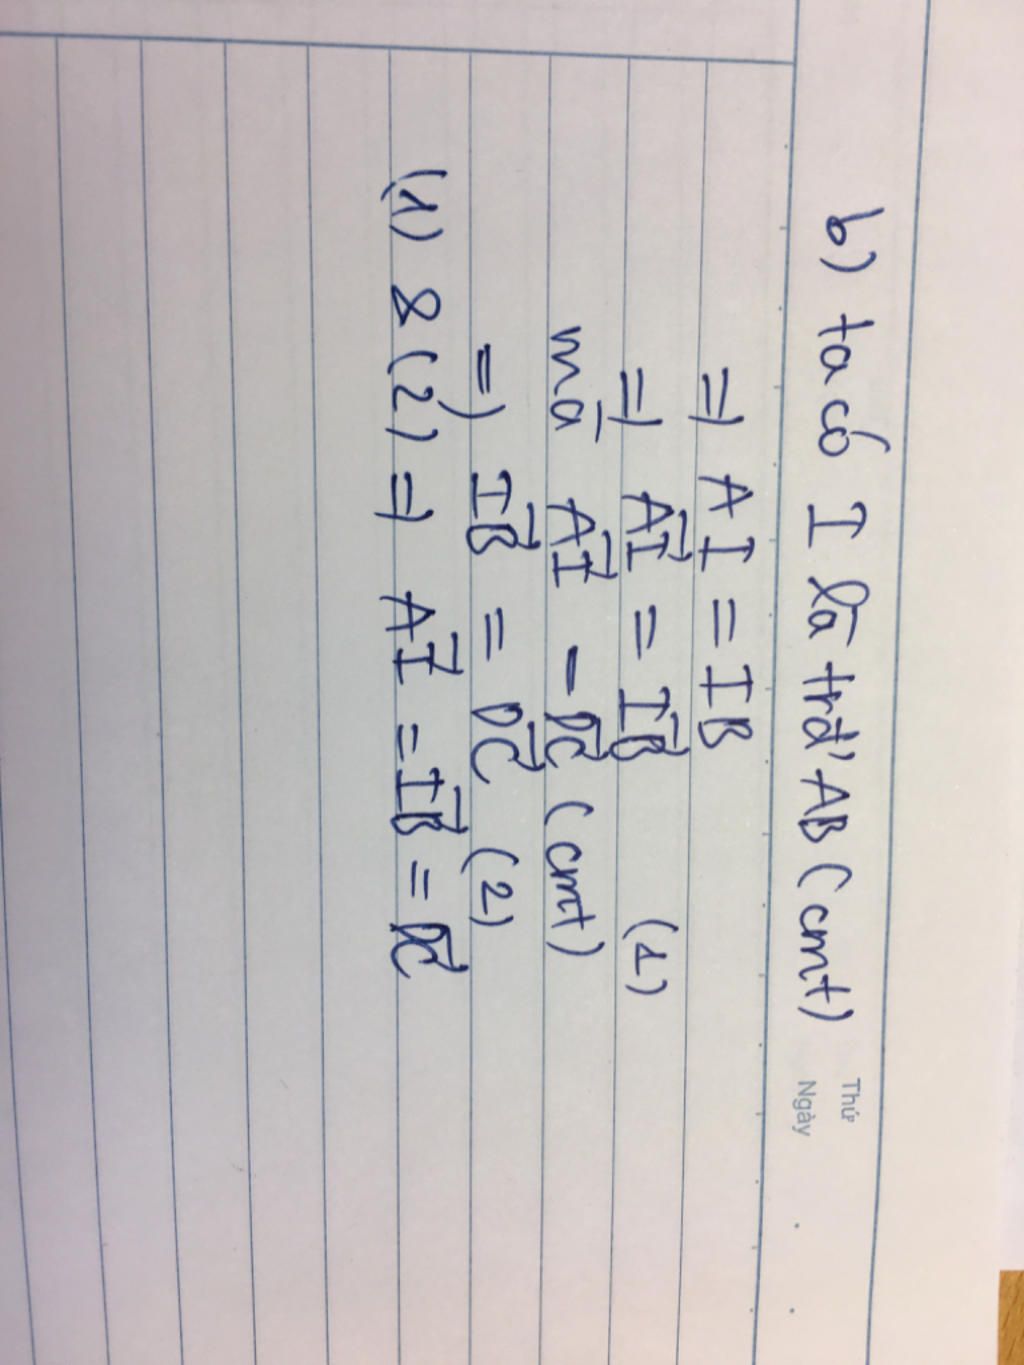 Thứ
Ngày
b) ta có I là trđ' AB (cmt)
=) AI = IB
=) A͞I⃗ = I͞B⃗ (1)
mà A͞I⃗ - D͞C⃗ (cmt)
=) I͞B⃗ = D͞C⃗ (2)
(1) & (2) =) A͞I⃗ = I͞B⃗ = D͞C⃗